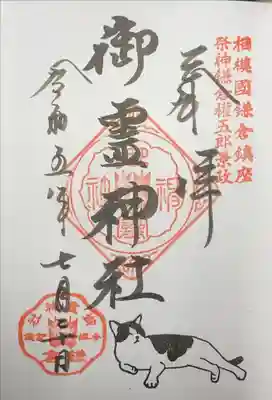 相模國鎌倉鎮座
祭神鎌倉權五郎景政
奉拝
御霊神社
令和五年
七月二十日